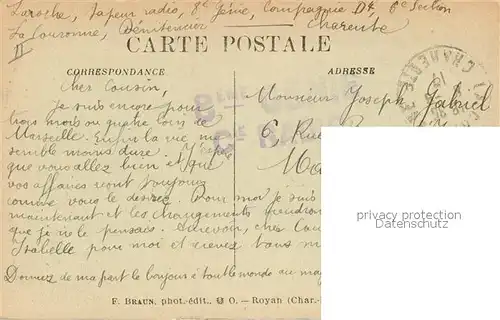 Laroche, Sapeur radio, 8e Génie, Compagnie D4, 6e Section
La Couronne, Pénitencier Charente
II
CARTE POSTALE
CORRESPONDANCE
ADRESSE
Cher Cousin,
Je suis encore pour
trois mois ou quatre loin de
Marseille. Enfin la vie me
semble moins dure. J'espère
que vous allez bien et que
vos affaires vont toujours
comme vous le desirez. Pour moi je suis
maintenant et les changements
que je ne le pensais. Au revoir, cher Cousin
Isabelle pour moi et
Donnez de ma part le bonjour à tout le monde au mag
Monsieur Joseph Gabriel
6, Rue
Ma
8ÈME
Cie RADIO
CHARENTE
privacy protection
watermark
F. BRAUN, phot.-édit., O. — Royan (Char.-